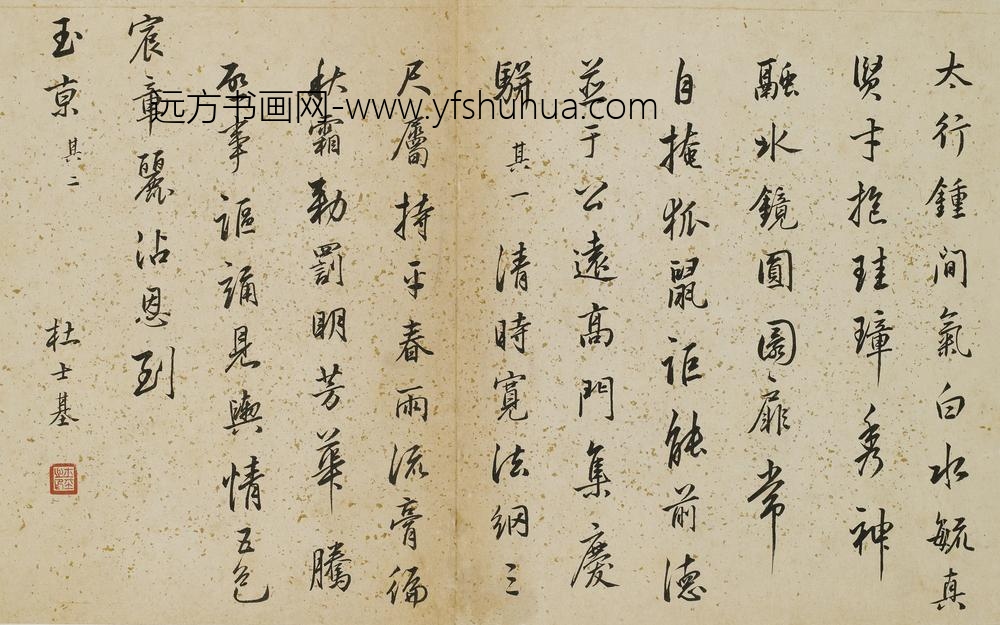 太行鍾間氣白水毓真
賢才抱珪璋秀神
融冰鏡圓園扉常
自掩狐鼠詎能前德
並于公遠高門集慶
駢 其一 清時寬法網三
尺屬持平春雨流膏徧
秋霜勅罰明芳華騰
事謳誦見輿情五色
宸章麗沾恩到
玉京 其二
杜士基
远方书画网-www.yfshuhua.com